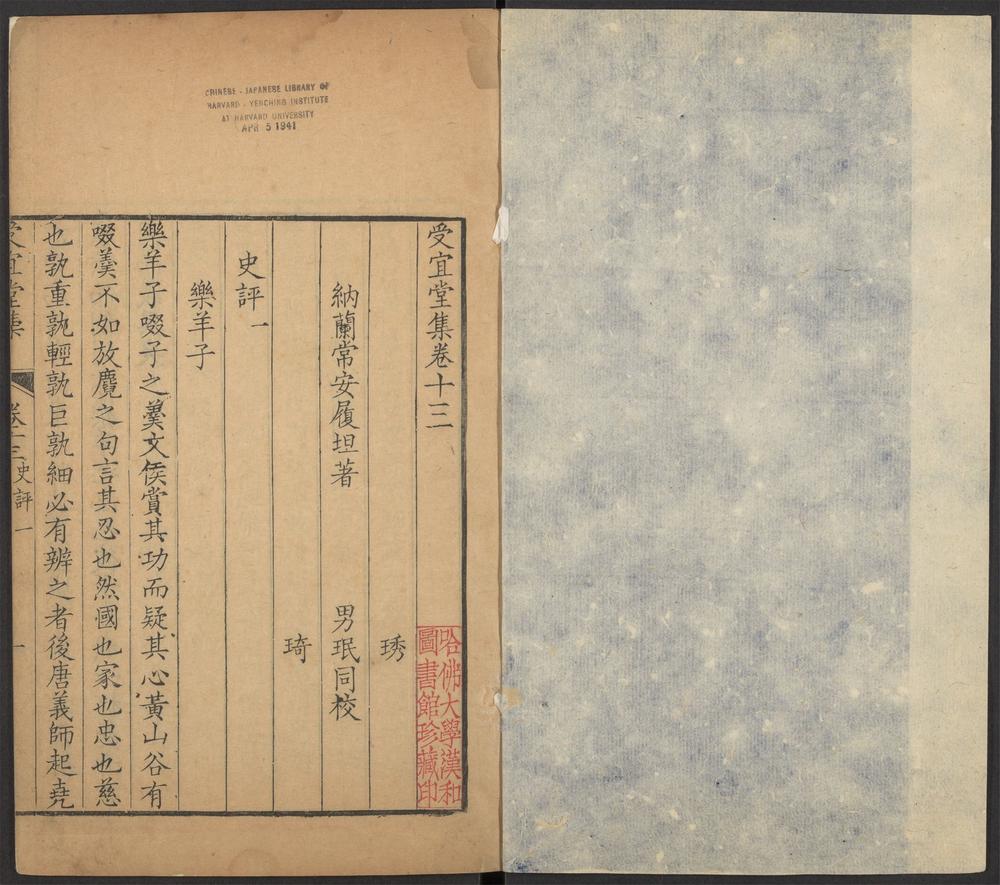 CHINESE - JAPANESE LIBRARY OF
HARVARD - YENCHING INSTITUTE
AT HARVARD UNIVERSITY
APR 5 1941
受宜堂集卷十三
哈佛大學漢和
圖書館珍藏印
琇
納蘭常安履坦著 男珉同校
琦
史評一
樂羊子
樂羊子啜子之羹文侯賞其功而疑其心黃山谷有
啜羹不如放麑之句言其忍也然國也家也忠也慈
也孰重孰輕孰巨孰細必有辨之者後唐義師起堯
受宜堂集 卷十三史評一 一